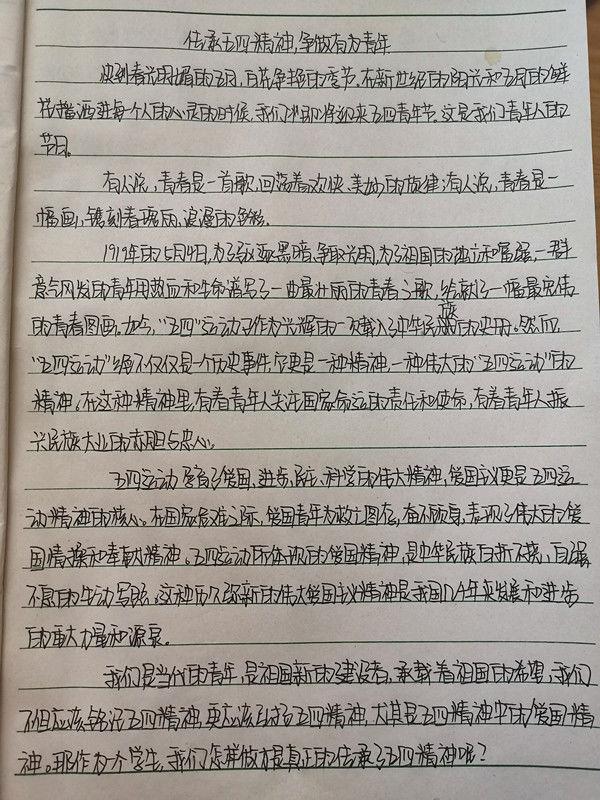 传承五四精神,争做有为青年
来到春光明媚的五月,百花争艳的季节。在新世纪的阳光和五月的鲜
花播洒进每个人的心灵的时候,我们也即将迎来五四青年节。这是我们青年人的
节日。
有人说,青春是一首歌,回荡着欢快、美妙的旋律;有人说,青春是一
幅画,镌刻着瑰丽、浪漫的色彩。
1919年的5月4日,为了驱逐黑暗、争取光明,为了祖国的独立和富强,一群
意气风发的青年用热血和生命谱写了一曲最壮丽的青春之歌,绘就了一幅最宏伟
的青春图画。如今,“五四”运动已作为光辉的一页载入了中华民族的史册。然而,
“五四运动”绝不仅仅是一个历史事件,它更是一种精神,一种伟大的“五四运动”的
精神。在这种精神里,有着青年人关注国家命运的责任和使命,有着青年人振
兴民族大业的赤胆与忠心。
五四运动孕育了爱国、进步、民主、科学的伟大精神,爱国主义更是五四运
动精神的核心。在国家危难之际,爱国青年为救亡图存,奋不顾身,表现了伟大的爱
国情操和奉献精神。五四运动所体现的爱国精神,是中华民族百折不挠、自强
不息的生动写照。这种历久弥新的伟大爱国主义精神是我国几十年来发展和进步
的重大力量和源泉。
我们是当代的青年,是祖国新的建设者,承载着祖国的希望,我们
不但应该铭记五四精神,更应该弘扬五四精神,尤其是五四精神中的爱国精
神。那作为一个学生,我们怎样做才是真正的传承了五四精神呢?